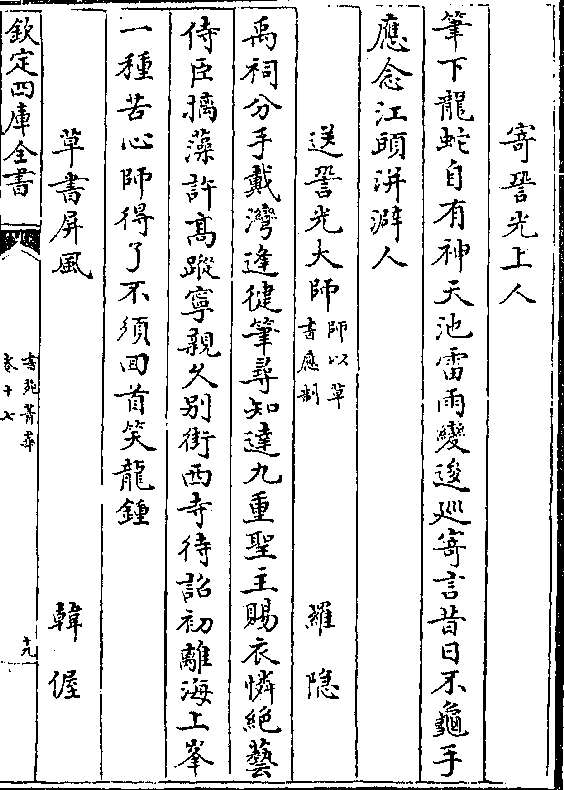 寄䛒光上人
筆下龍蛇自有神天池雷雨變逡巡寄言昔日不龜手
應念江頭洴澼人
送䛒光大師師以草書應制 羅隠
禹祠分手戴灣逢健筆尋知達九重聖主賜衣憐絶藝
侍臣摛藻許髙蹤寧親久别街西寺待詔初離海上峯
一種苦心師得了不須回首笑龍鍾
草書屏風 韓偓
欽定四庫全書
書苑菁華
卷十七
十九